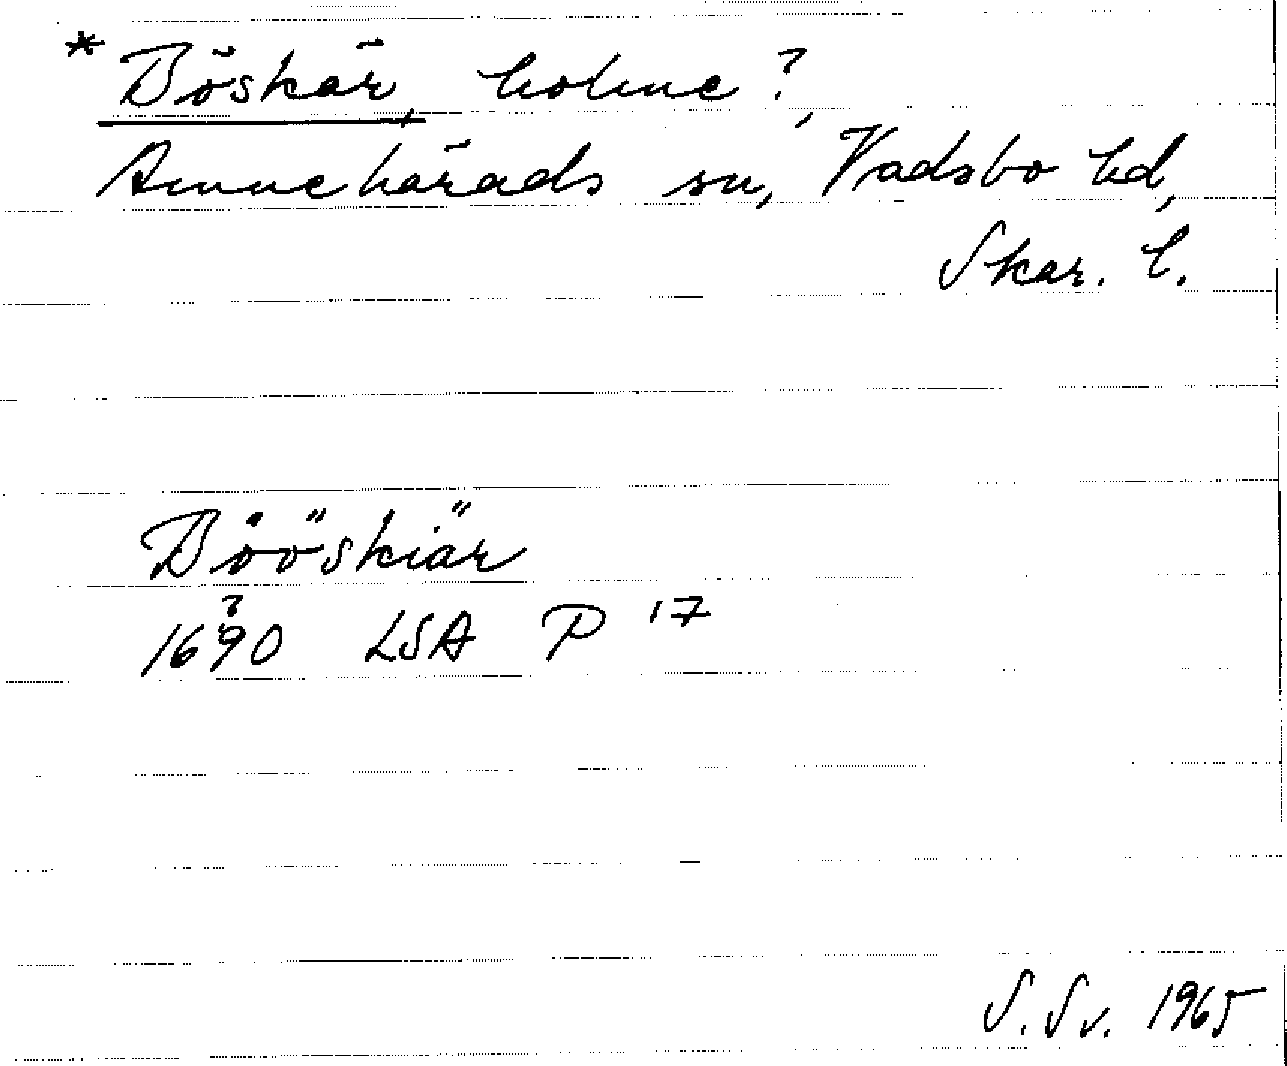 * Böskär, holme ?,
Amnehärads sn, Vadsbo hd,
Skar. l.
Bööskiär
16?90 LSA P 17
S. Sv. 1965